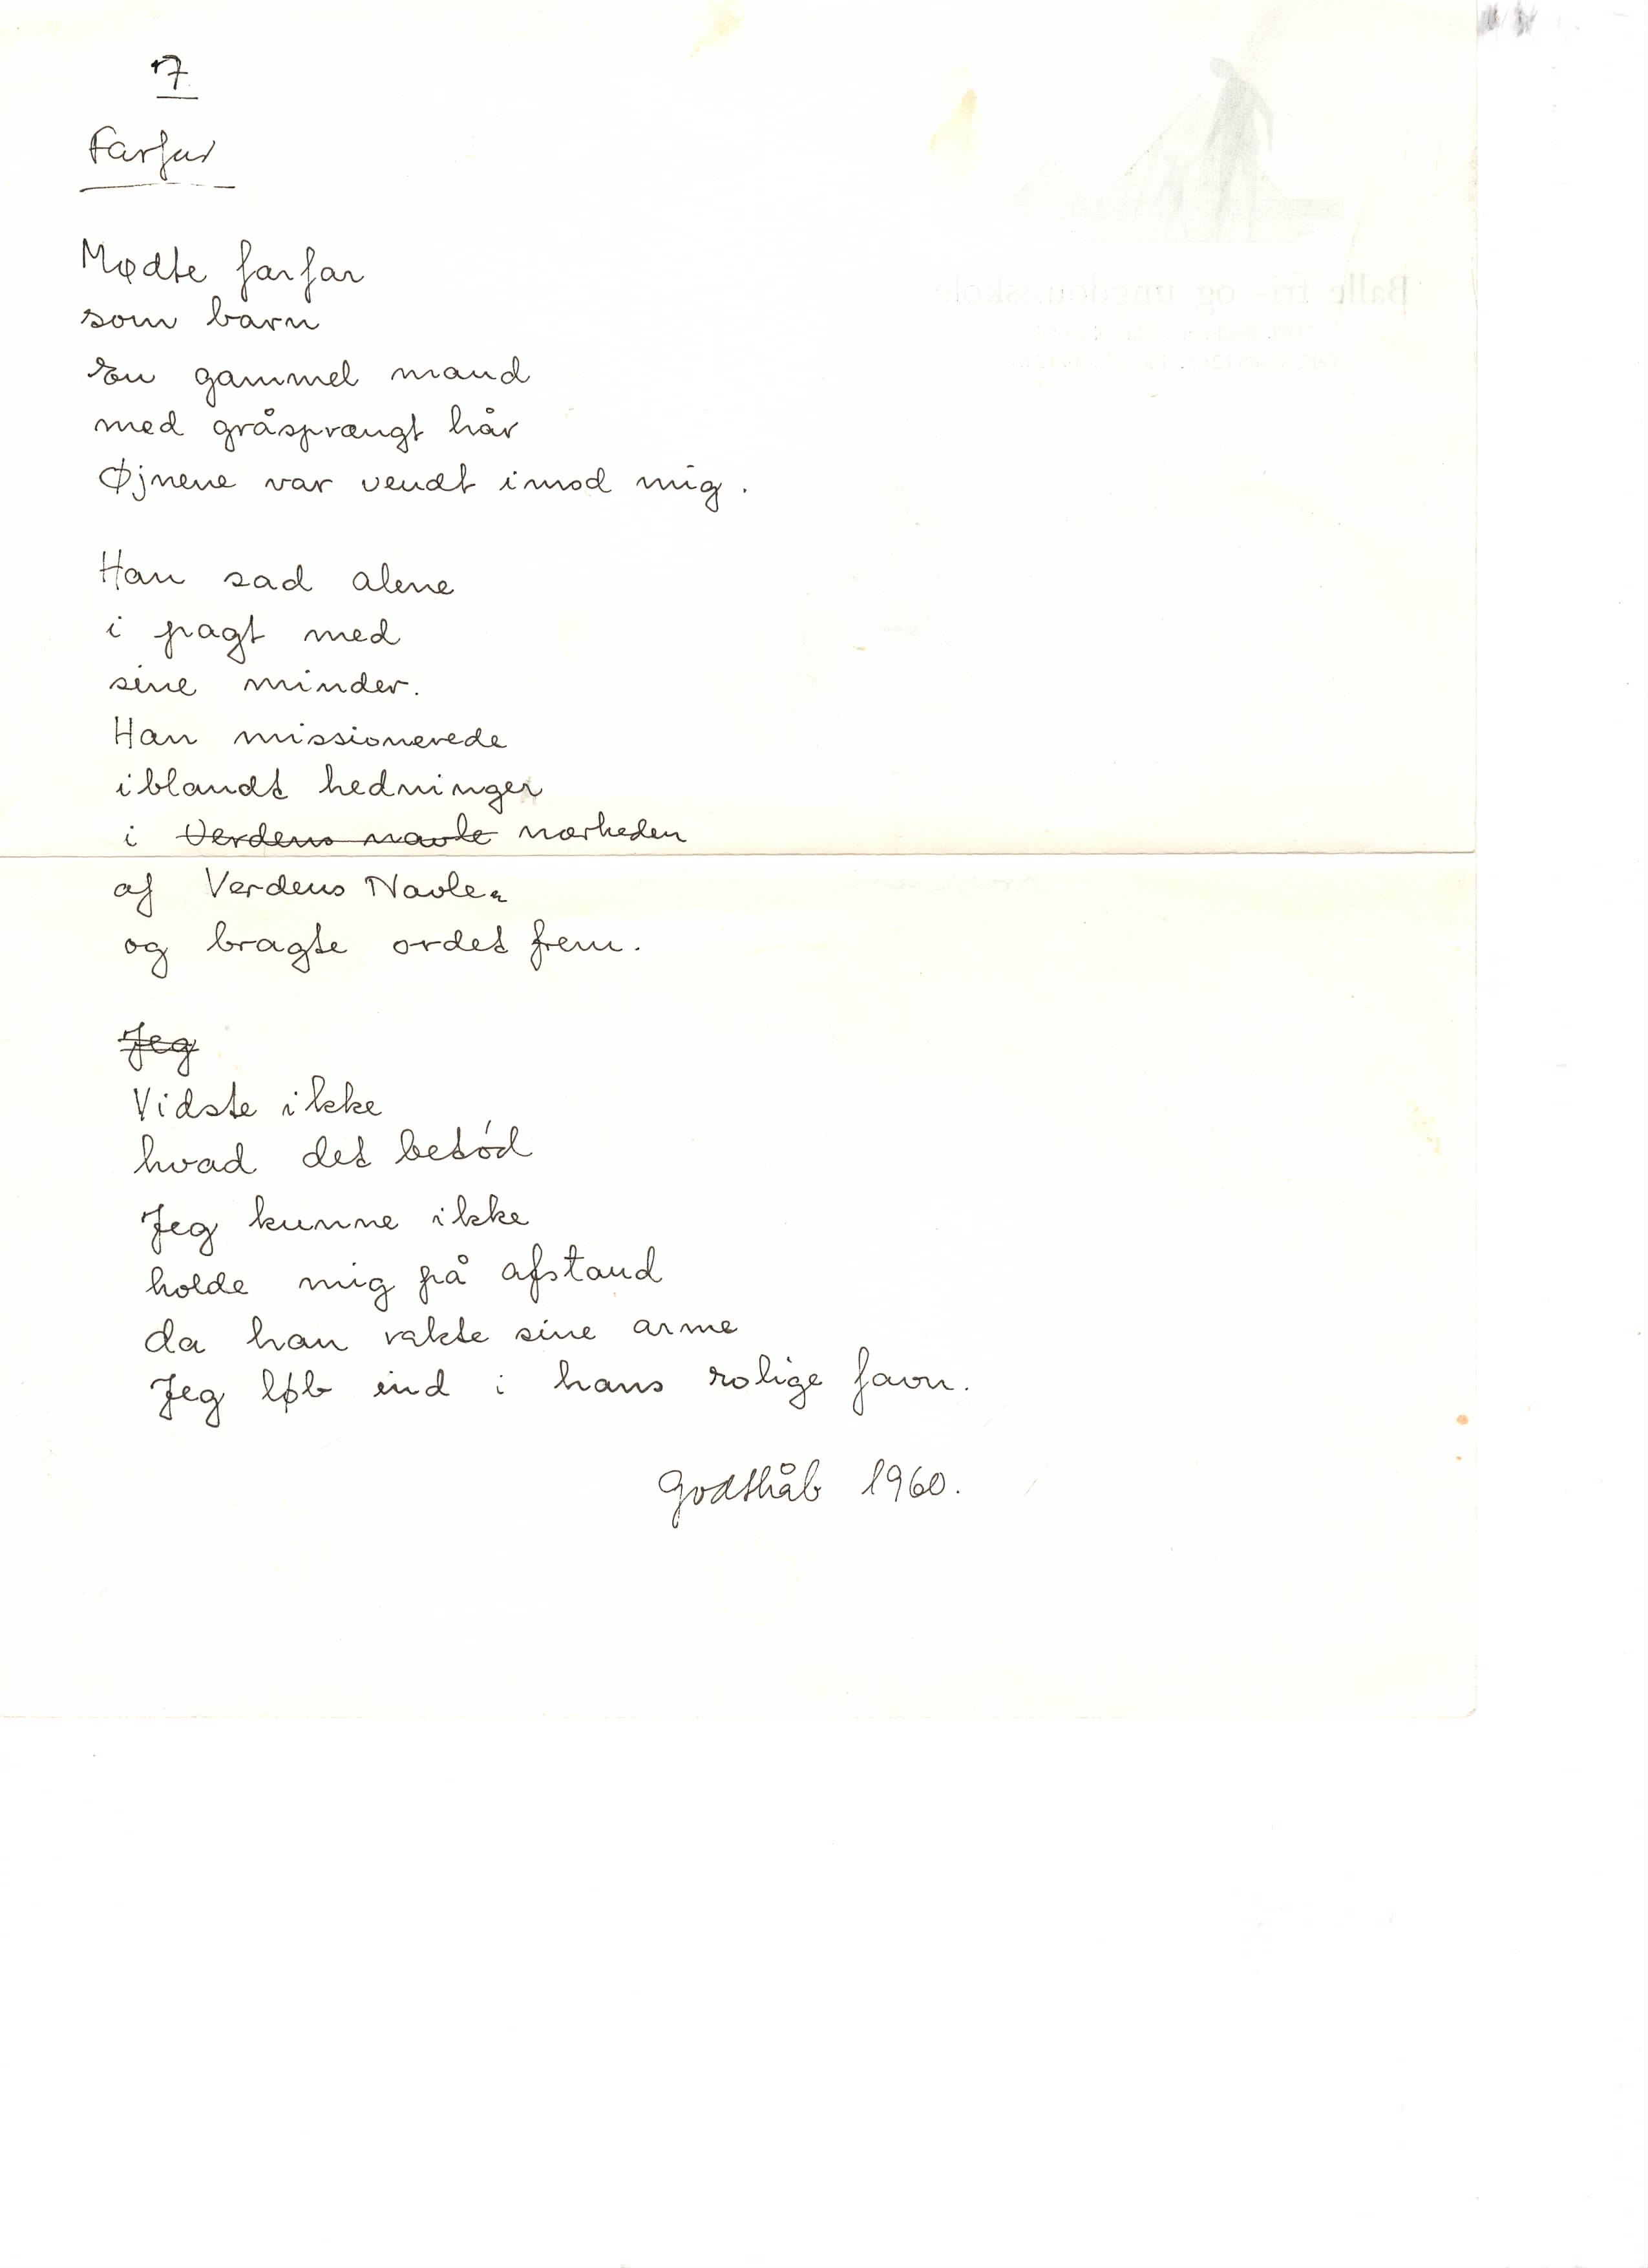 7
Farfar
Mødte farfar
som barn
En gammel mand
med gråsprængt hår
Øjnene var vendt imod mig.
Han sad alene
i pagt med
sine minder.
Han missionerede
iblandt hedninger
i Verdens navle nærheden
af Verdens Navle
og bragte ordet frem.
Jeg
Vidste ikke
hvad det betód
Jeg kunne ikke
holde mig på afstand
da han rakte sine arme
Jeg løb ind i hans rolige favn.
Godthåb 1960.
Balle fri- og ungdomsskole